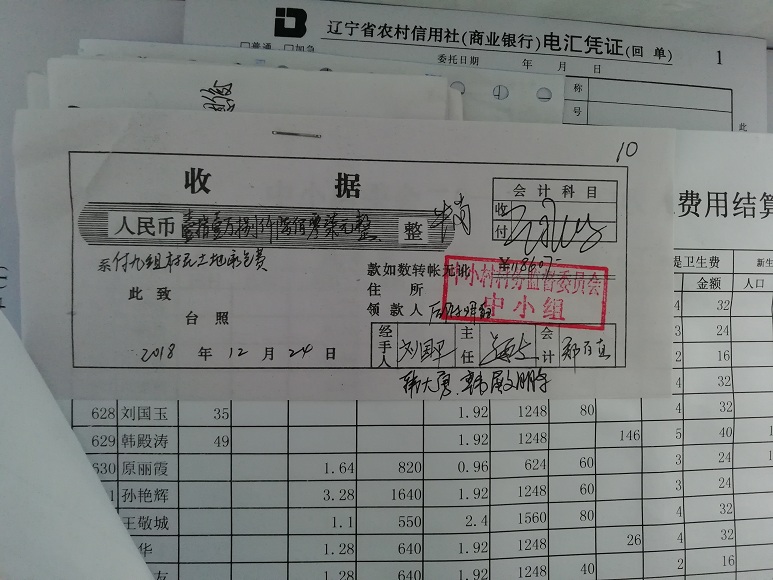 辽宁省农村信用社(商业银行)电汇凭证(回 单) 1
□普通 □加急 委托日期 年 月 日
称
号
此
10
收 据
会计科目
收
付
人民币 整
系付九组村民土地承包费
款如数转帐元讫 ¥118607-
此 致
住 所
中小村村务监督委员会
中小组
台 照
领 款 人
2018 年 12 月 24 日
经手人 刘国玉 主任 会计 郑百直
韩大勇 韩殿鹏
费用结算
是卫生费 新生
金额 人口
4 32
3 24
2 16
4 32
4 32
628 刘国玉 35 1.92 1248 80 4 32
629 韩殿涛 49 1.92 1248 146 5 40
630 原丽霞 1.64 820 0.96 624 60 3 24
1 孙艳辉 3.28 1640 1.92 1248 60 3 24
王敬城 1.1 550 2.4 1560 80 4 32
华 1.28 640 1.92 1248 26 4 32
友 1.28 640 1.92 1248 40 2 16